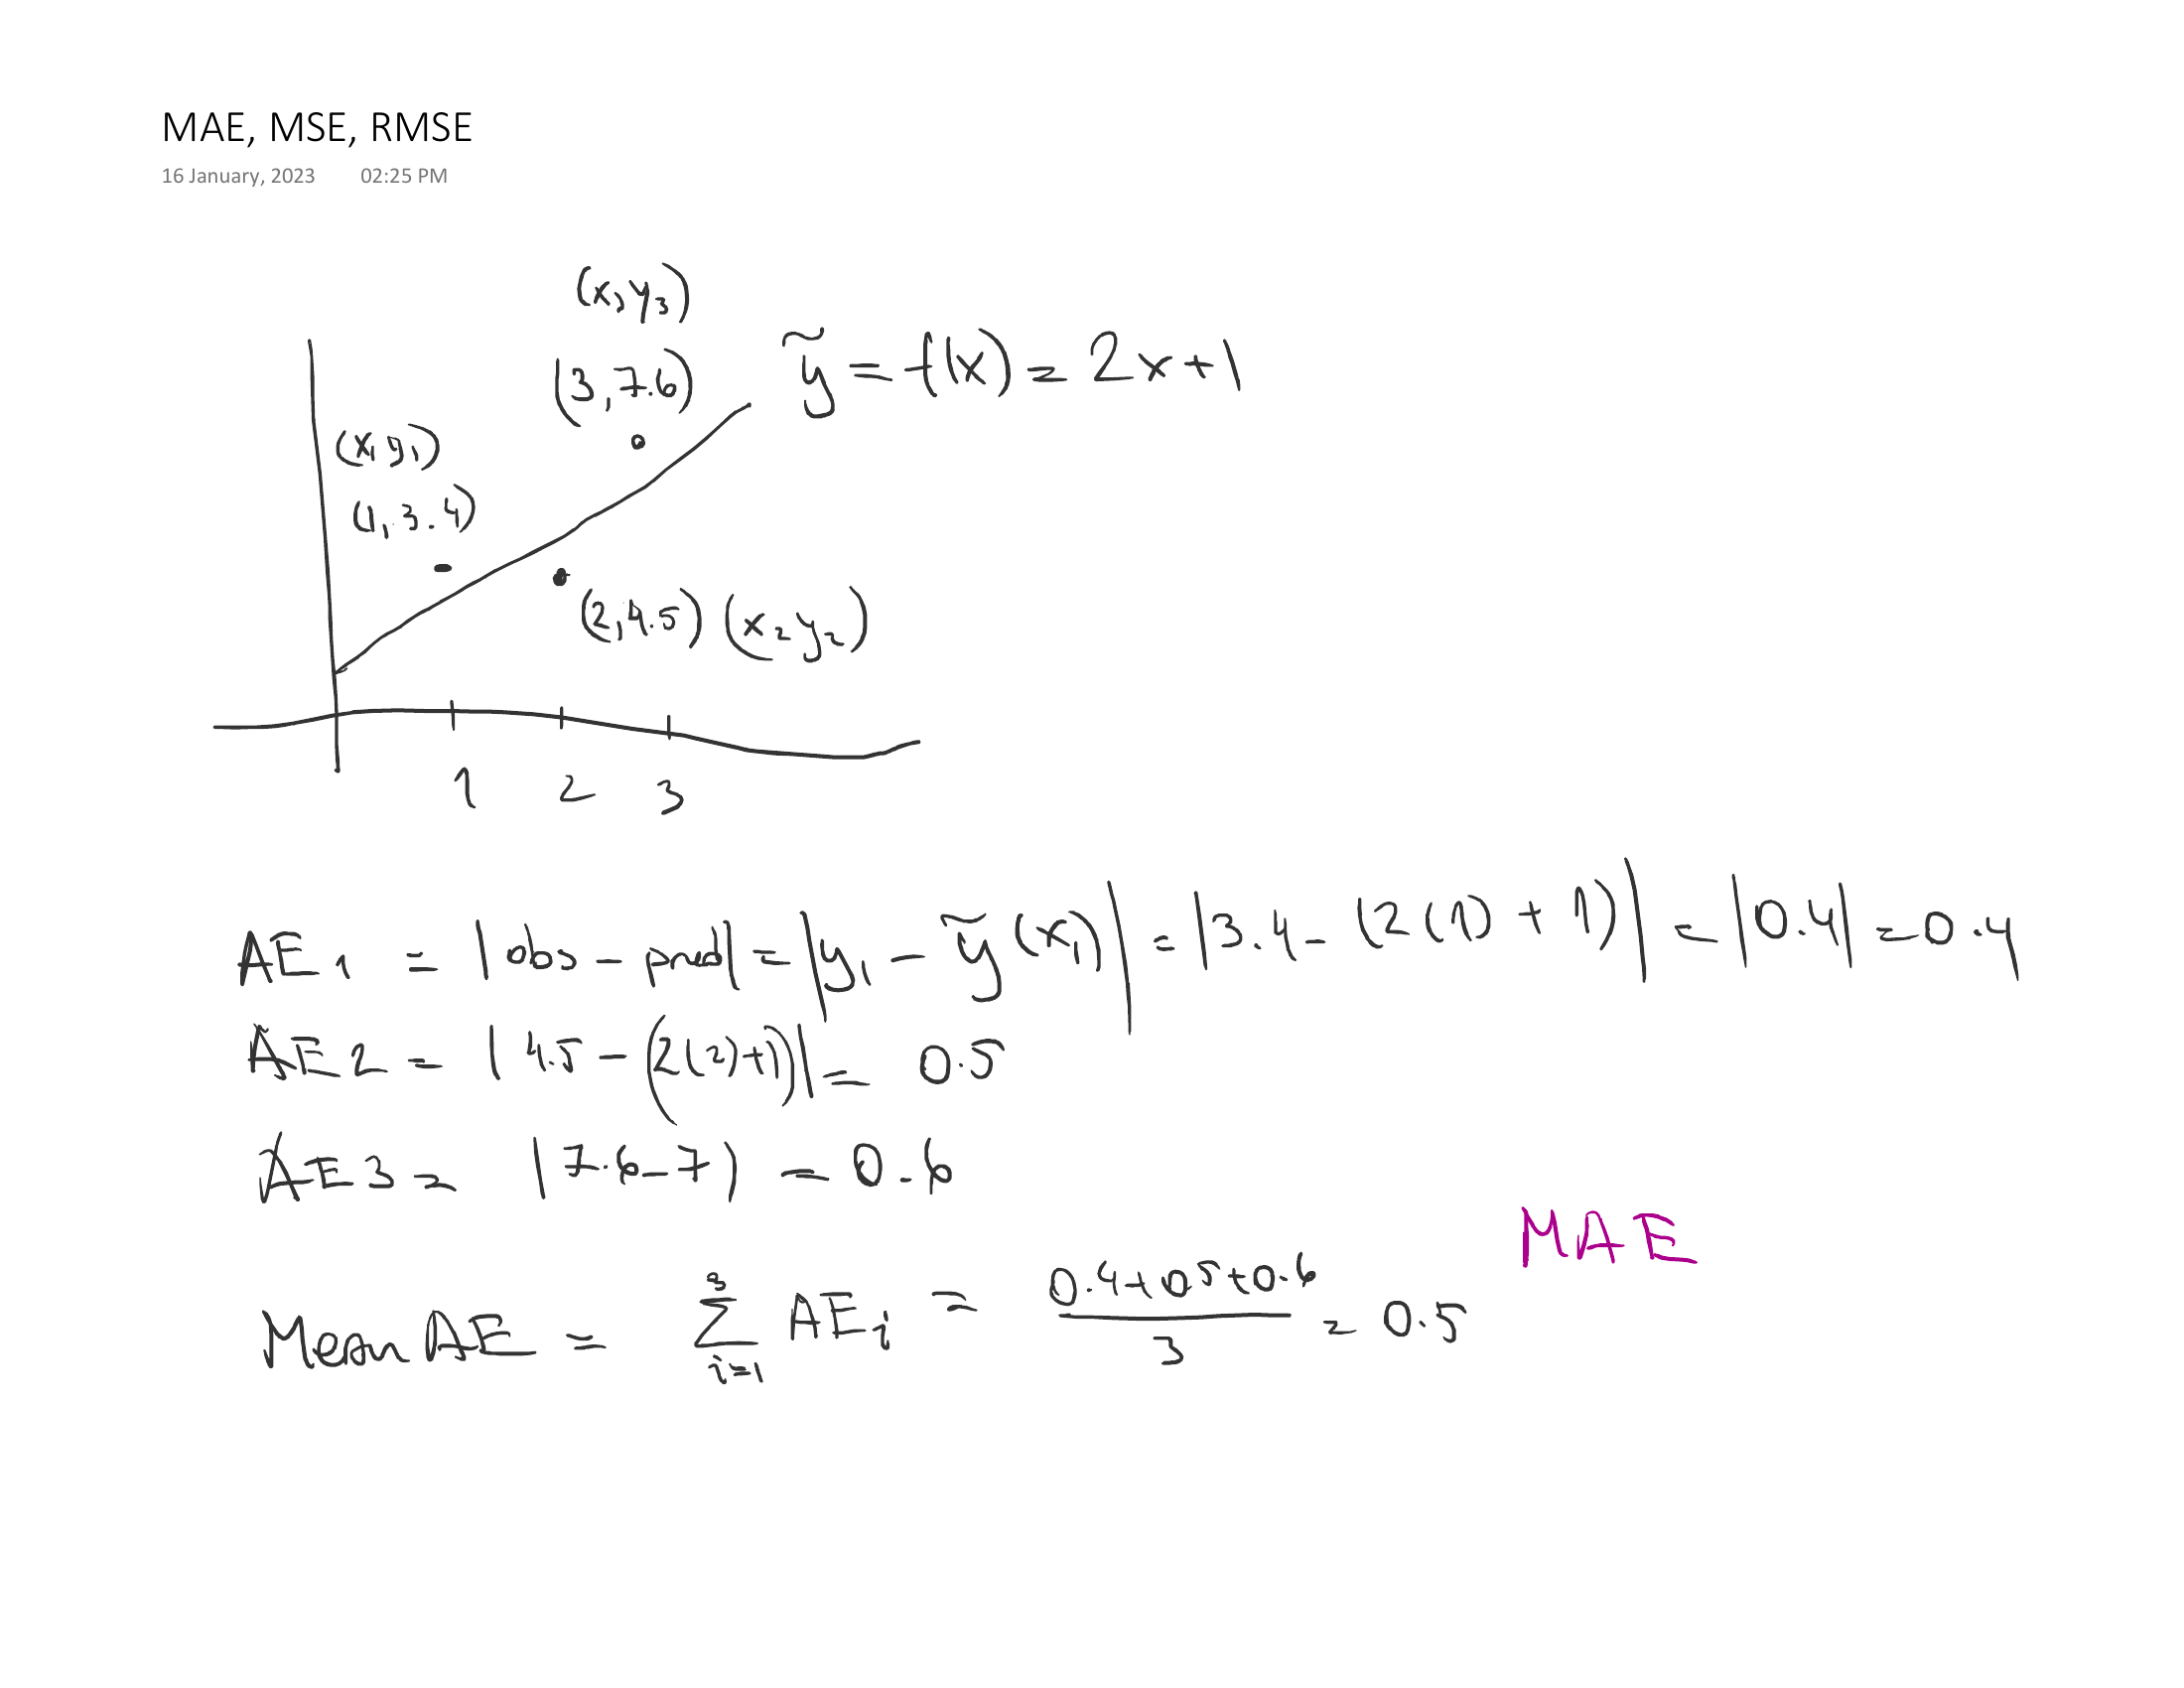 MAE, MSE, RMSE
16 January, 2023 02:25 PM
(x₃y₃)
(3,7.6)
ỹ = f(x) = 2x+1
(x₁y₁)
(1,3.4)
(2,4.5) (x₂y₂)
1 2 3
AE1 = |obs - pred| = |y₁ - ỹ(x₁)| = |3.4 - (2(1) + 1)| = |0.4| = 0.4
AE2 = |4.5 - (2(2)+1)| = 0.5
AE3 = |7.6-7| = 0.6
MAE
Mean AE = 3∑i=1 AEi = (0.4+0.5+0.6)/3 = 0.5